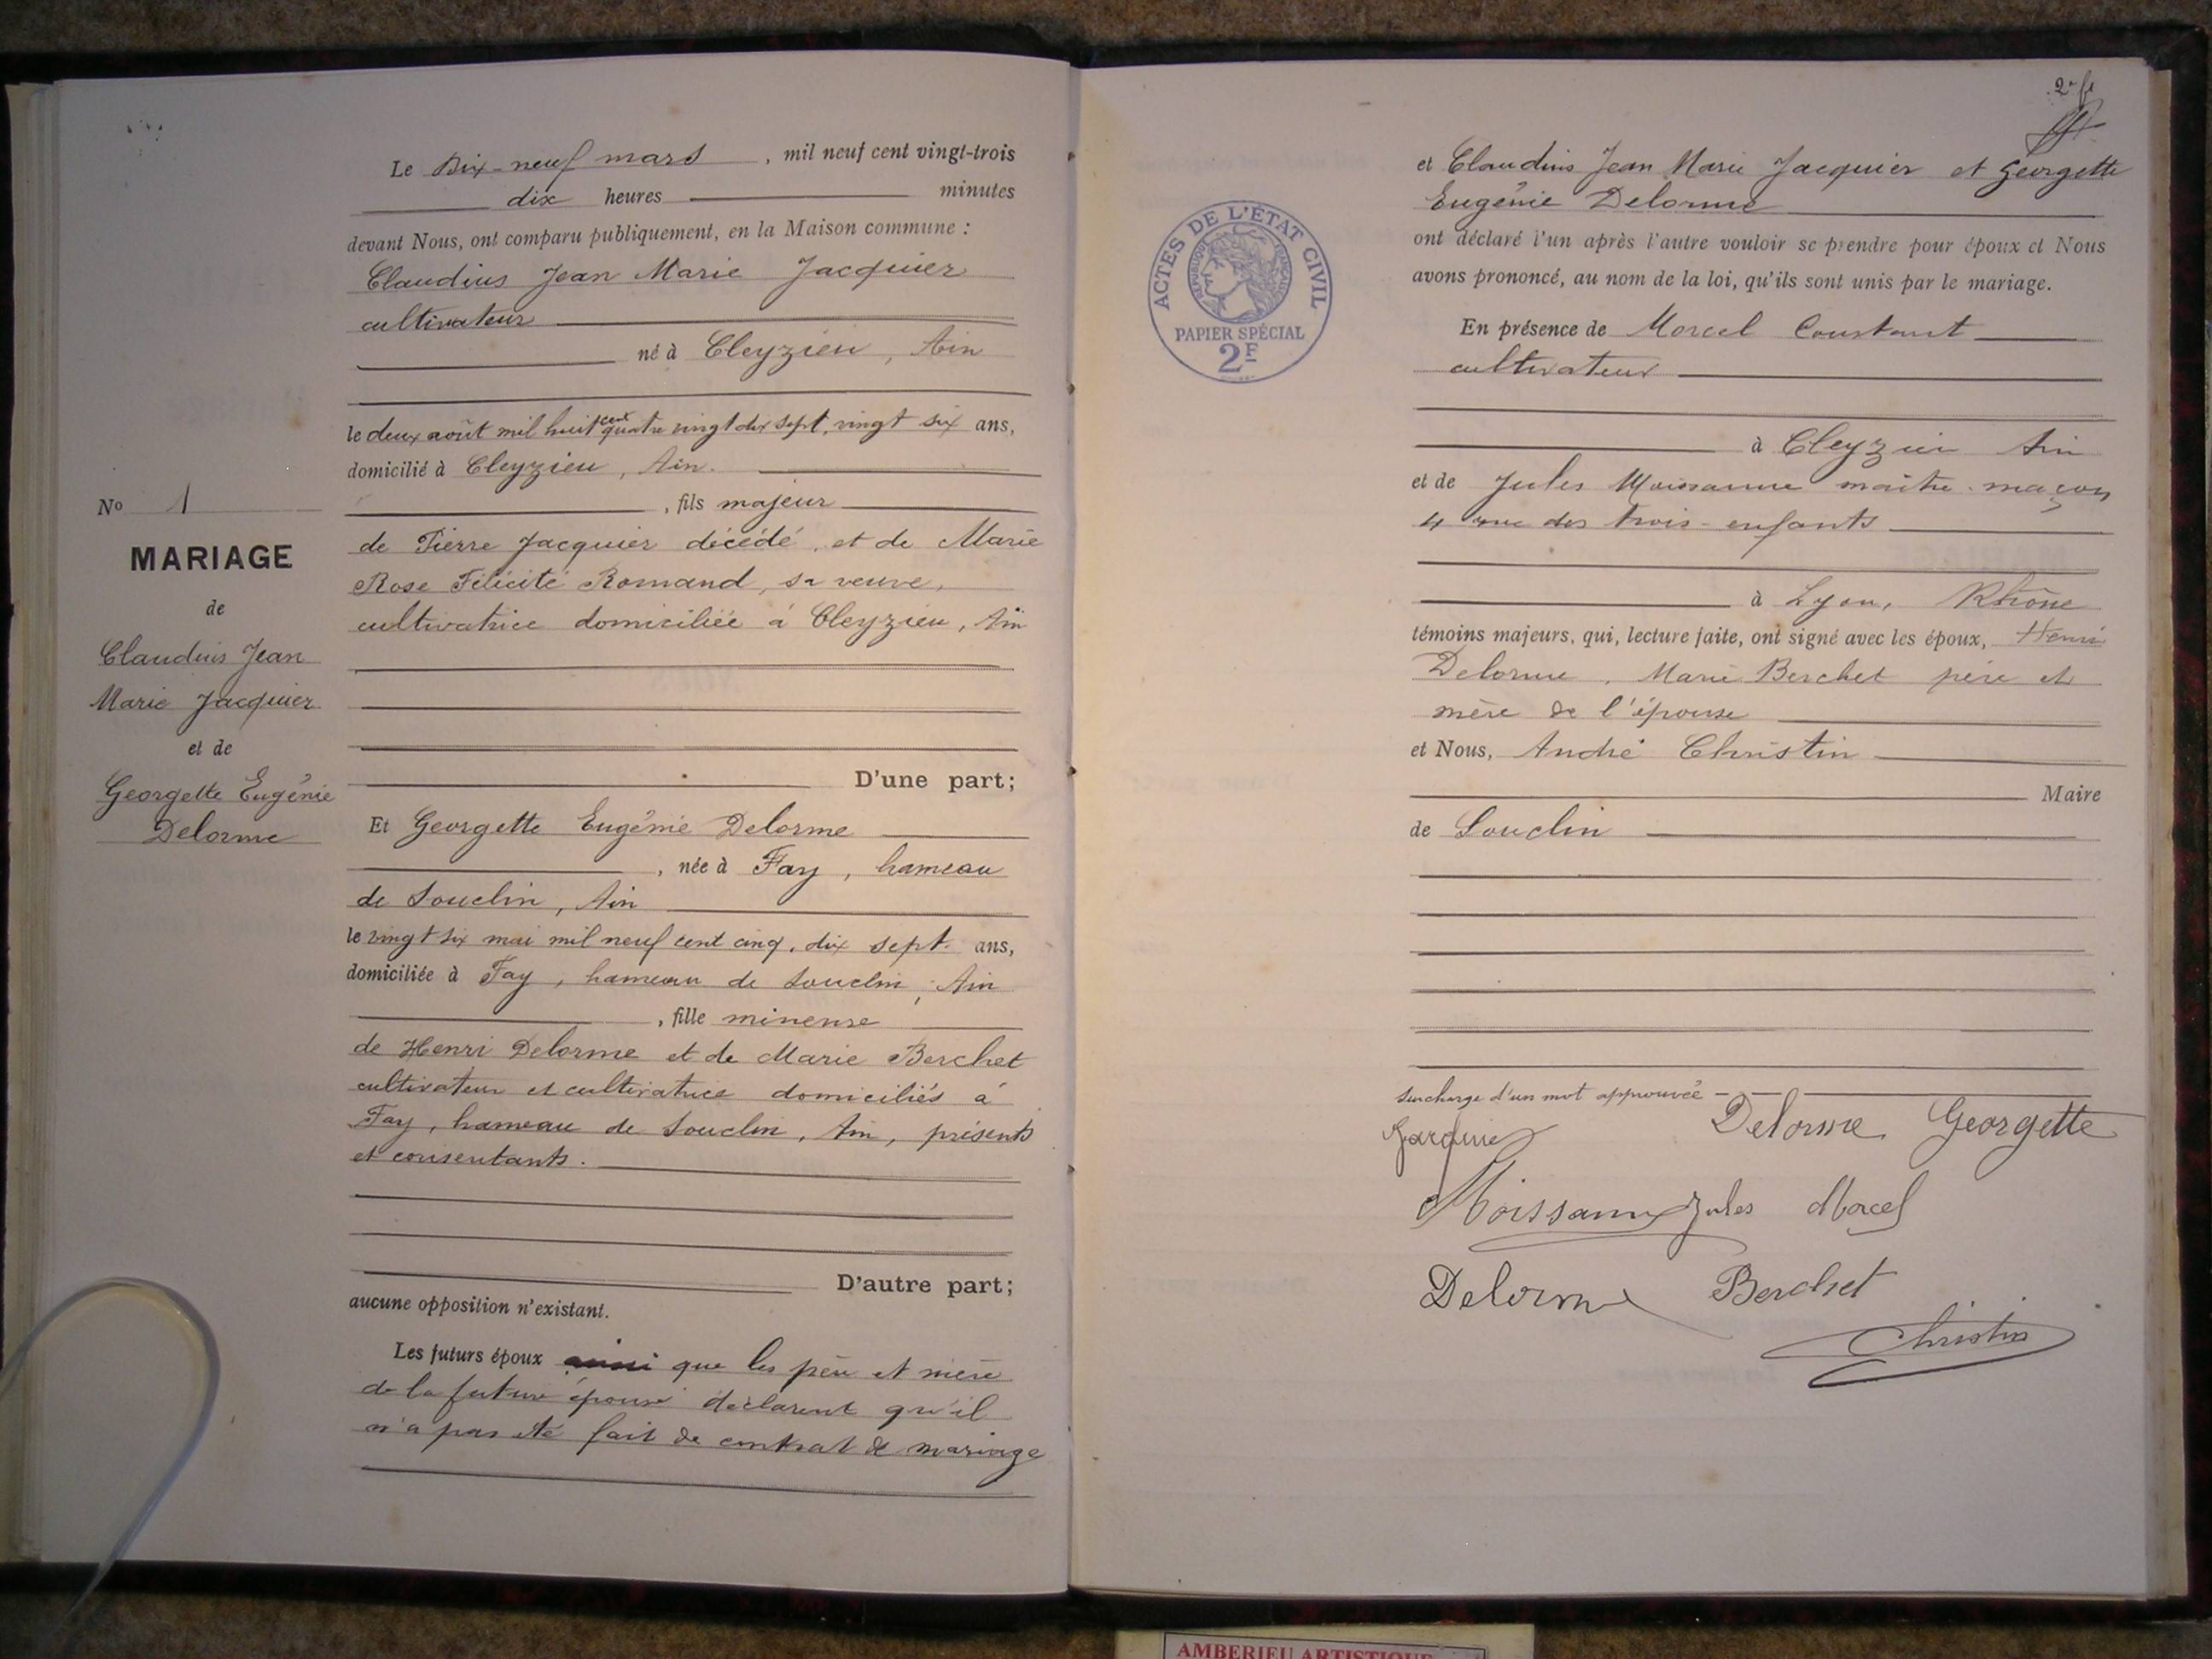 No 1
MARIAGE
de
Claudius Jean
Marie Jacquier
et de
Georgette Eugénie
Delorme
Le Dix-neuf mars, mil neuf cent vingt-trois
dix heures minutes
devant Nous, ont comparu publiquement, en la Maison commune :
Claudius Jean Marie Jacquier
cultivateur
né à Cleyzieu, Ain
le deux août mil huit cent quatre vingt dix sept, vingt six ans,
domicilié à Cleyzieu, Ain.
, fils majeur
de Pierre Jacquier décédé, et de Marie
Rose Félicité Romand, sa veuve,
cultivatrice domiciliée à Cleyzieu, Ain
D'une part;
Et Georgette Eugénie Delorme
, née à Fay, hameau
de Souclin, Ain
le vingt six mai mil neuf cent cinq, dix sept ans,
domiciliée à Fay, hameau de Souclin, Ain
, fille mineure
de Henri Delorme et de Marie Berchet
cultivateur et cultivatrice domiciliés à
Fay, hameau de Souclin, Ain, présents
et consentants.
D'autre part;
aucune opposition n'existant.
Les futurs époux ainsi que les père et mère
de la future épouse déclarent qu'il
n'a pas été fait de contrat de mariage
2e f
ACTES DE L'ÉTAT CIVIL
RÉPUBLIQUE FRANÇAISE
PAPIER SPÉCIAL
2F
et Claudius Jean Marie Jacquier et Georgette
Eugénie Delorme
ont déclaré l'un après l'autre vouloir se prendre pour époux et Nous
avons prononcé, au nom de la loi, qu'ils sont unis par le mariage.
En présence de Morcel Constant
cultivateur
à Cleyzieu Ain
et de Jules Moissanne maître-maçon
4 rue des trois-enfants
à Lyon, Rhône
témoins majeurs, qui, lecture faite, ont signé avec les époux, Henri
Delorme, Marie Berchet père et
mère de l'épouse
et Nous, André Christin
Maire
de Souclin
surcharge d'un mot approuvée
Jacquier Delorme Georgette
Moissanne Jules Morcel
Delorme Berchet
Christin
AMBERIEU ARTISTIQUE